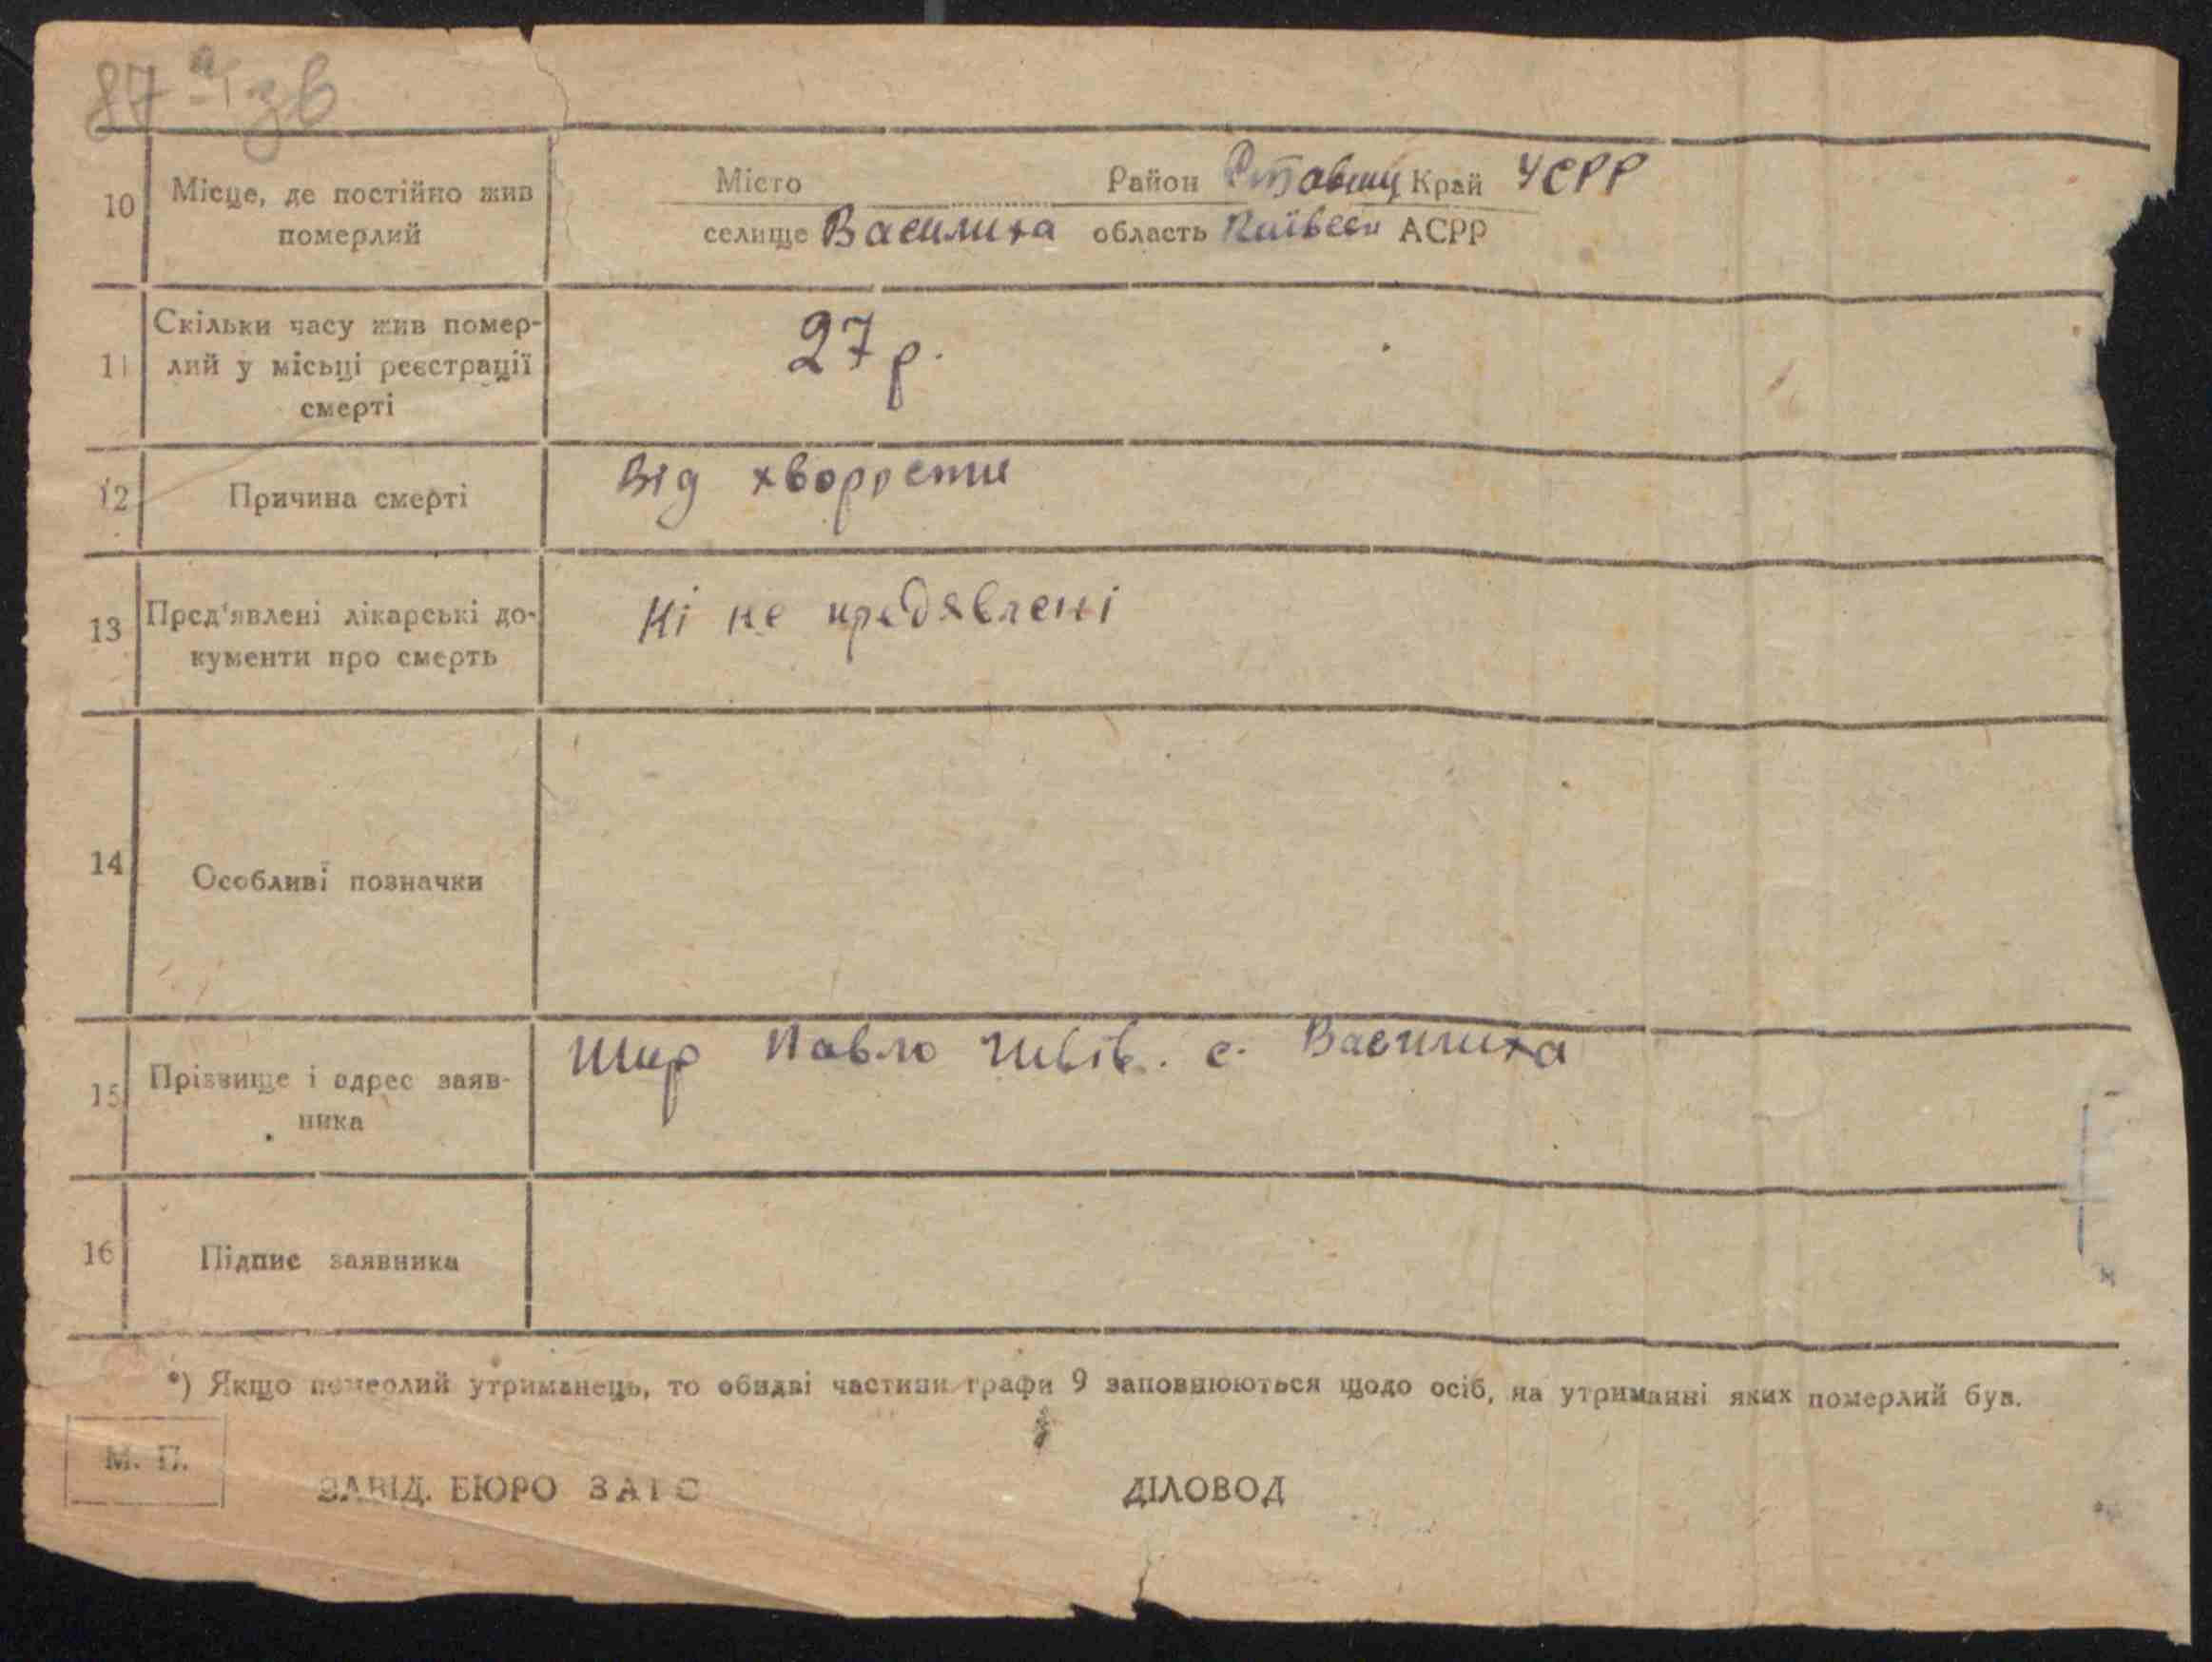 87 зв
10 Місце, де постійно жив померлий
Місто Район Ставищ Край УСРР
селище Василиха область Київськ АСРР
11 Скільки часу жив помер-
лий у місьці реєстрації
смерті
27 р.
12 Причина смерті Від хворости
13 Пред'явлені лікарські до-
кументи про смерть
Ні не предявлені
14 Особливі позначки
15 Прізвище і адрес заяв-
ника
Шир Павло с. Василиха
16 Підпис заявника
*) Якщо померлий утриманець, то обидві частини графи 9 заповнюються щодо осіб, на утриманні яких померлий був.
М. П.
ЗАВІД. БЮРО ЗАГС ДІЛОВОД